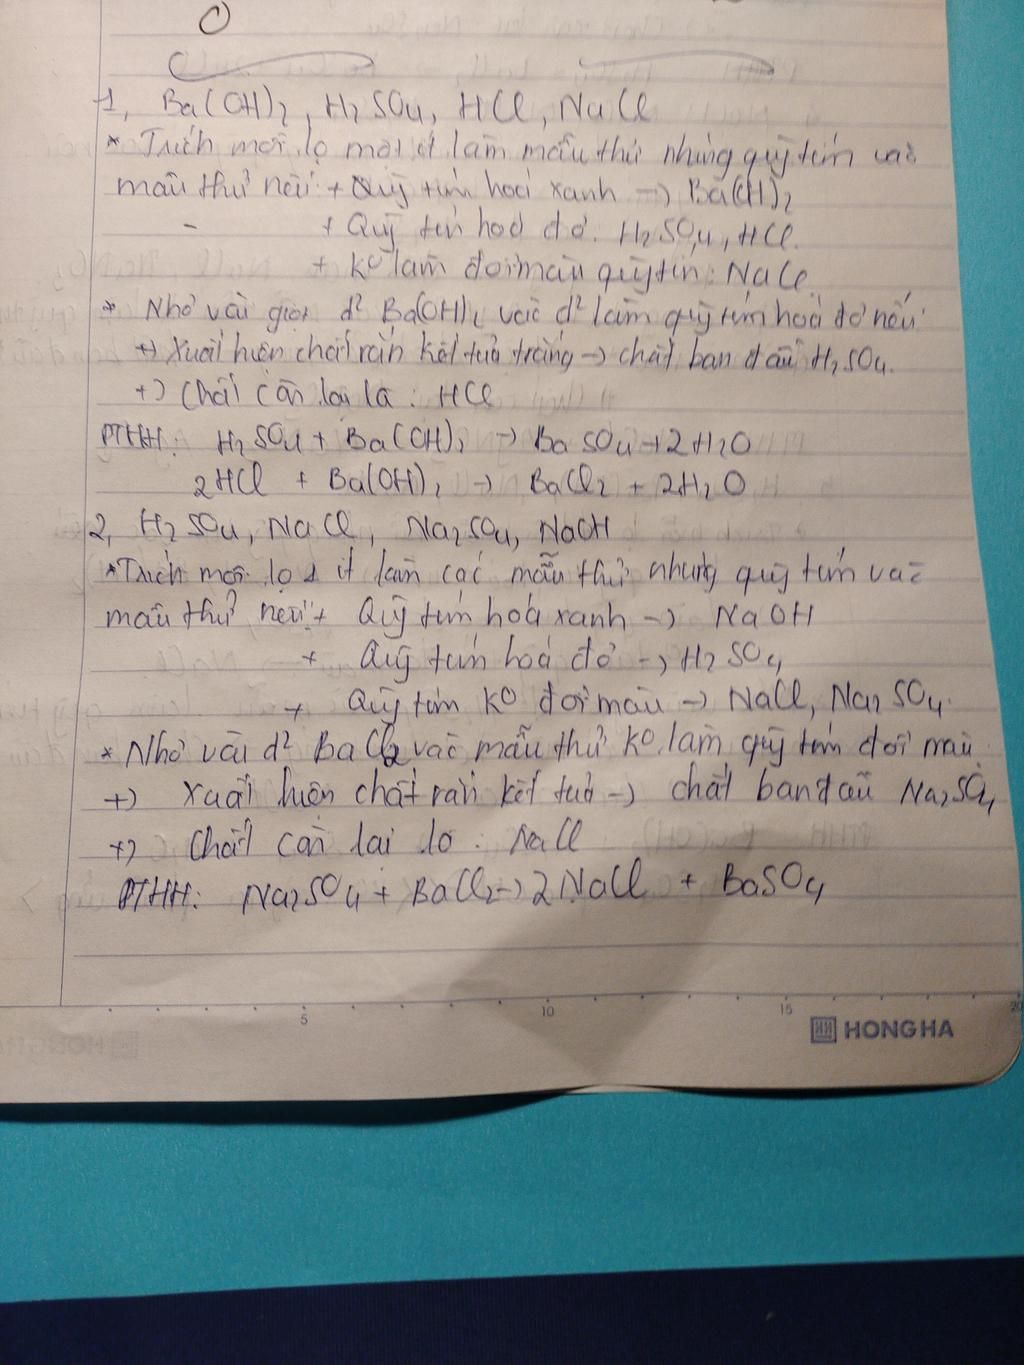 1, Ba(OH)2, H2SO4, HCl, NaCl
* Trích mỗi lọ một ít làm mẫu thử nhúng quỳ tím vào
mẫu thử nếu: + Quỳ tím hoá xanh -> Ba(OH)2
+ Quỳ tím hoá đỏ: H2SO4, HCl.
+ Ko làm đổi màu quỳ tím: NaCl
* Nhỏ vài giọt d² Ba(OH)2 vào d² làm quỳ tím hoá đỏ nếu:
+> Xuất hiện chất rắn kết tủa trắng -> chất ban đầu H2SO4.
+> Chất còn lại là: HCl
PTHH: H2SO4 + Ba(OH)2 -> BaSO4 + 2H2O
2HCl + Ba(OH)2 -> BaCl2 + 2H2O
2, H2SO4, NaCl, Na2SO4, NaOH
* Trích mỗi lọ 1 ít làm các mẫu thử nhúng quỳ tím vào
mẫu thử nếu: + Quỳ tím hoá xanh -> NaOH
+ Quỳ tím hoá đỏ -> H2SO4
+ Quỳ tím ko đổi màu -> NaCl, Na2SO4.
* Nhỏ vài d² BaCl2 vào mẫu thử ko làm quỳ tím đổi màu
+> Xuất hiện chất rắn kết tủa -> chất ban đầu Na2SO4
+> Chất còn lại là: NaCl
PTHH: Na2SO4 + BaCl2 -> 2NaCl + BaSO4
5 10 15 20
HONG HA